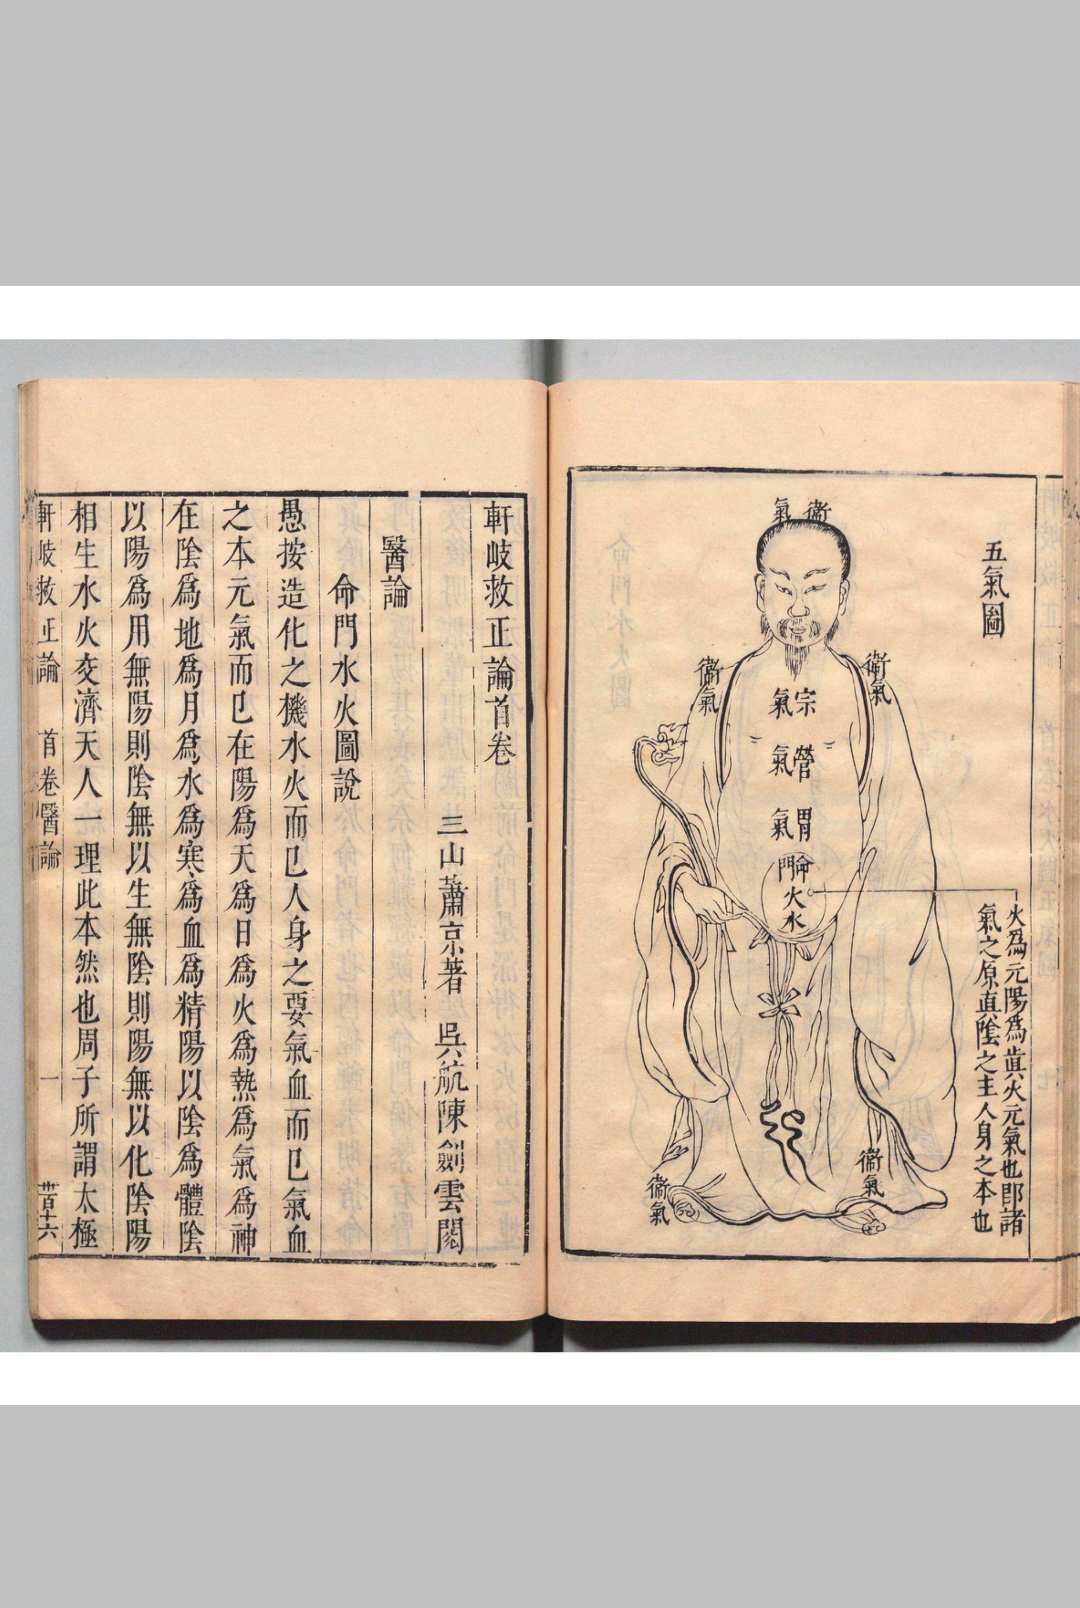 五氣圖
衛氣
衛氣
衛氣
宗氣
營氣
胃氣
命門
火水
衛氣
衛氣
火爲元陽爲眞火元氣也卽諸
氣之原眞陰之主人身之本也
軒岐救正論首卷
三山蕭京著 吳航陳劍雲閱
醫論
命門水火圖說
愚按造化之機水火而已人身之要氣血而已氣血
之本元氣而已在陽爲天爲日爲火爲熱爲氣爲神
在陰爲地爲月爲水爲寒爲血爲精陽以陰爲體陰
以陽爲用無陽則陰無以生無陰則陽無以化陰陽
相生水火交濟天人一理此本然也周子所謂太極
軒岐救正論 首卷醫論 一 廿百十六